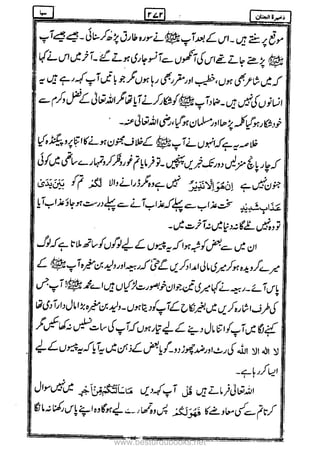 ذخیرۃ الجنان ۲۷۲ سبا
موقع پر سنتے ہیں۔ اس کے بعد آپ ﷺ نے سورہ طارق پڑھ کر سنائی۔ جیسے جیسے آپ
ﷺ پڑھتے جاتے تھے اس کی آنکھوں سے آنسو جاری ہوتے گئے۔ آخر میں اس نے کہا
کہ میں شاعر بھی ہوں، خطیب اور مقرر بھی رہا ہوں مگر جو باتیں آپ کہہ رہے ہیں یہ
انسانوں کی نہیں ہیں۔ ضماد آپ ﷺ کو شکار کرنے آیا تھا مگر اللہ تعالیٰ کے فضل و کرم سے
خود شکار ہو گیا کلمہ پڑھا اور مسلمان ہو گیا، رضی اللہ تعالیٰ عنہ۔
خلاصہ یہ ہے کہ انہوں نے آپ ﷺ کے خلاف مجنون ہونے کا اتنا پروپیگنڈہ کیا
کہ چار پانچ منزلیں دور تک خبریں پہنچیں۔ تو فرمایا تم غور و فکر کرو تمہارے ساتھی میں کوئی
جنون نہیں ہے اِنْ هُوَ اِلَّا نَذِیْرٌ نہیں ہے وہ مگر ڈرانے والا لَّكُمْ تم کو بَیْنَ یَدَیْ
عَذَابٍ شَدِیْدٍ سخت عذاب سے پہلے کہ عذاب آنے سے پہلے درست ہو جاؤ عذاب آیا
تو وہ نہیں ٹلے گا نہ دنیا میں نہ آخرت میں۔
ان میں سے بعض کو شبہ ہوا کہ یہ پیسوں کے لیے لوگوں کو ساتھ ملاتا ہے کہ لوگ
میرے گرویدہ ہو کر میری مالی امداد کریں گے حتیٰ کہ ربیعہ اور ولید بن مغیرہ آپ ﷺ کے
پاس آئے۔ ربیعہ نے کہا میری تین جوان خوبصورت لڑکیاں ہیں اے محمد ﷺ آپ جس
کی طرف اشارہ کریں میں بغیر نکاح کے آپ کو دیتا ہوں۔ ولید بن مغیرہ بڑا مال دار آدمی تھا
کہنے لگا میں آپ کو اتنا مال دینے کے لیے تیار ہوں کہ آپ کی سات نسلیں نہ کھا سکیں مگر
لا الہ الا اللہ کی رٹ اور ضد چھوڑ دو۔ گویا بعض کے ذہن میں یہ آیا کہ یہ پیسوں کے لیے
ایسا کر رہا ہے۔
اللہ تعالیٰ فرماتے ہیں قُلْ آپ کہہ دیں مَا سَاَلْتُكُمْ مِّنْ اَجْرٍ میں نہیں سوال
کرتا تم سے کسی معاوضے کا فَهُوَ لَكُمْ پس وہ تمہارے لیے ہو گا وہ اپنے پاس رکھنا نہ مانگا
www.besturdubooks.net